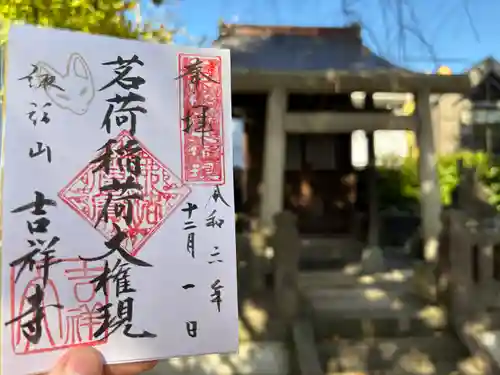 奉拝
令和六年
十二月一日
茗荷稲荷大権現
諏訪山
吉祥寺